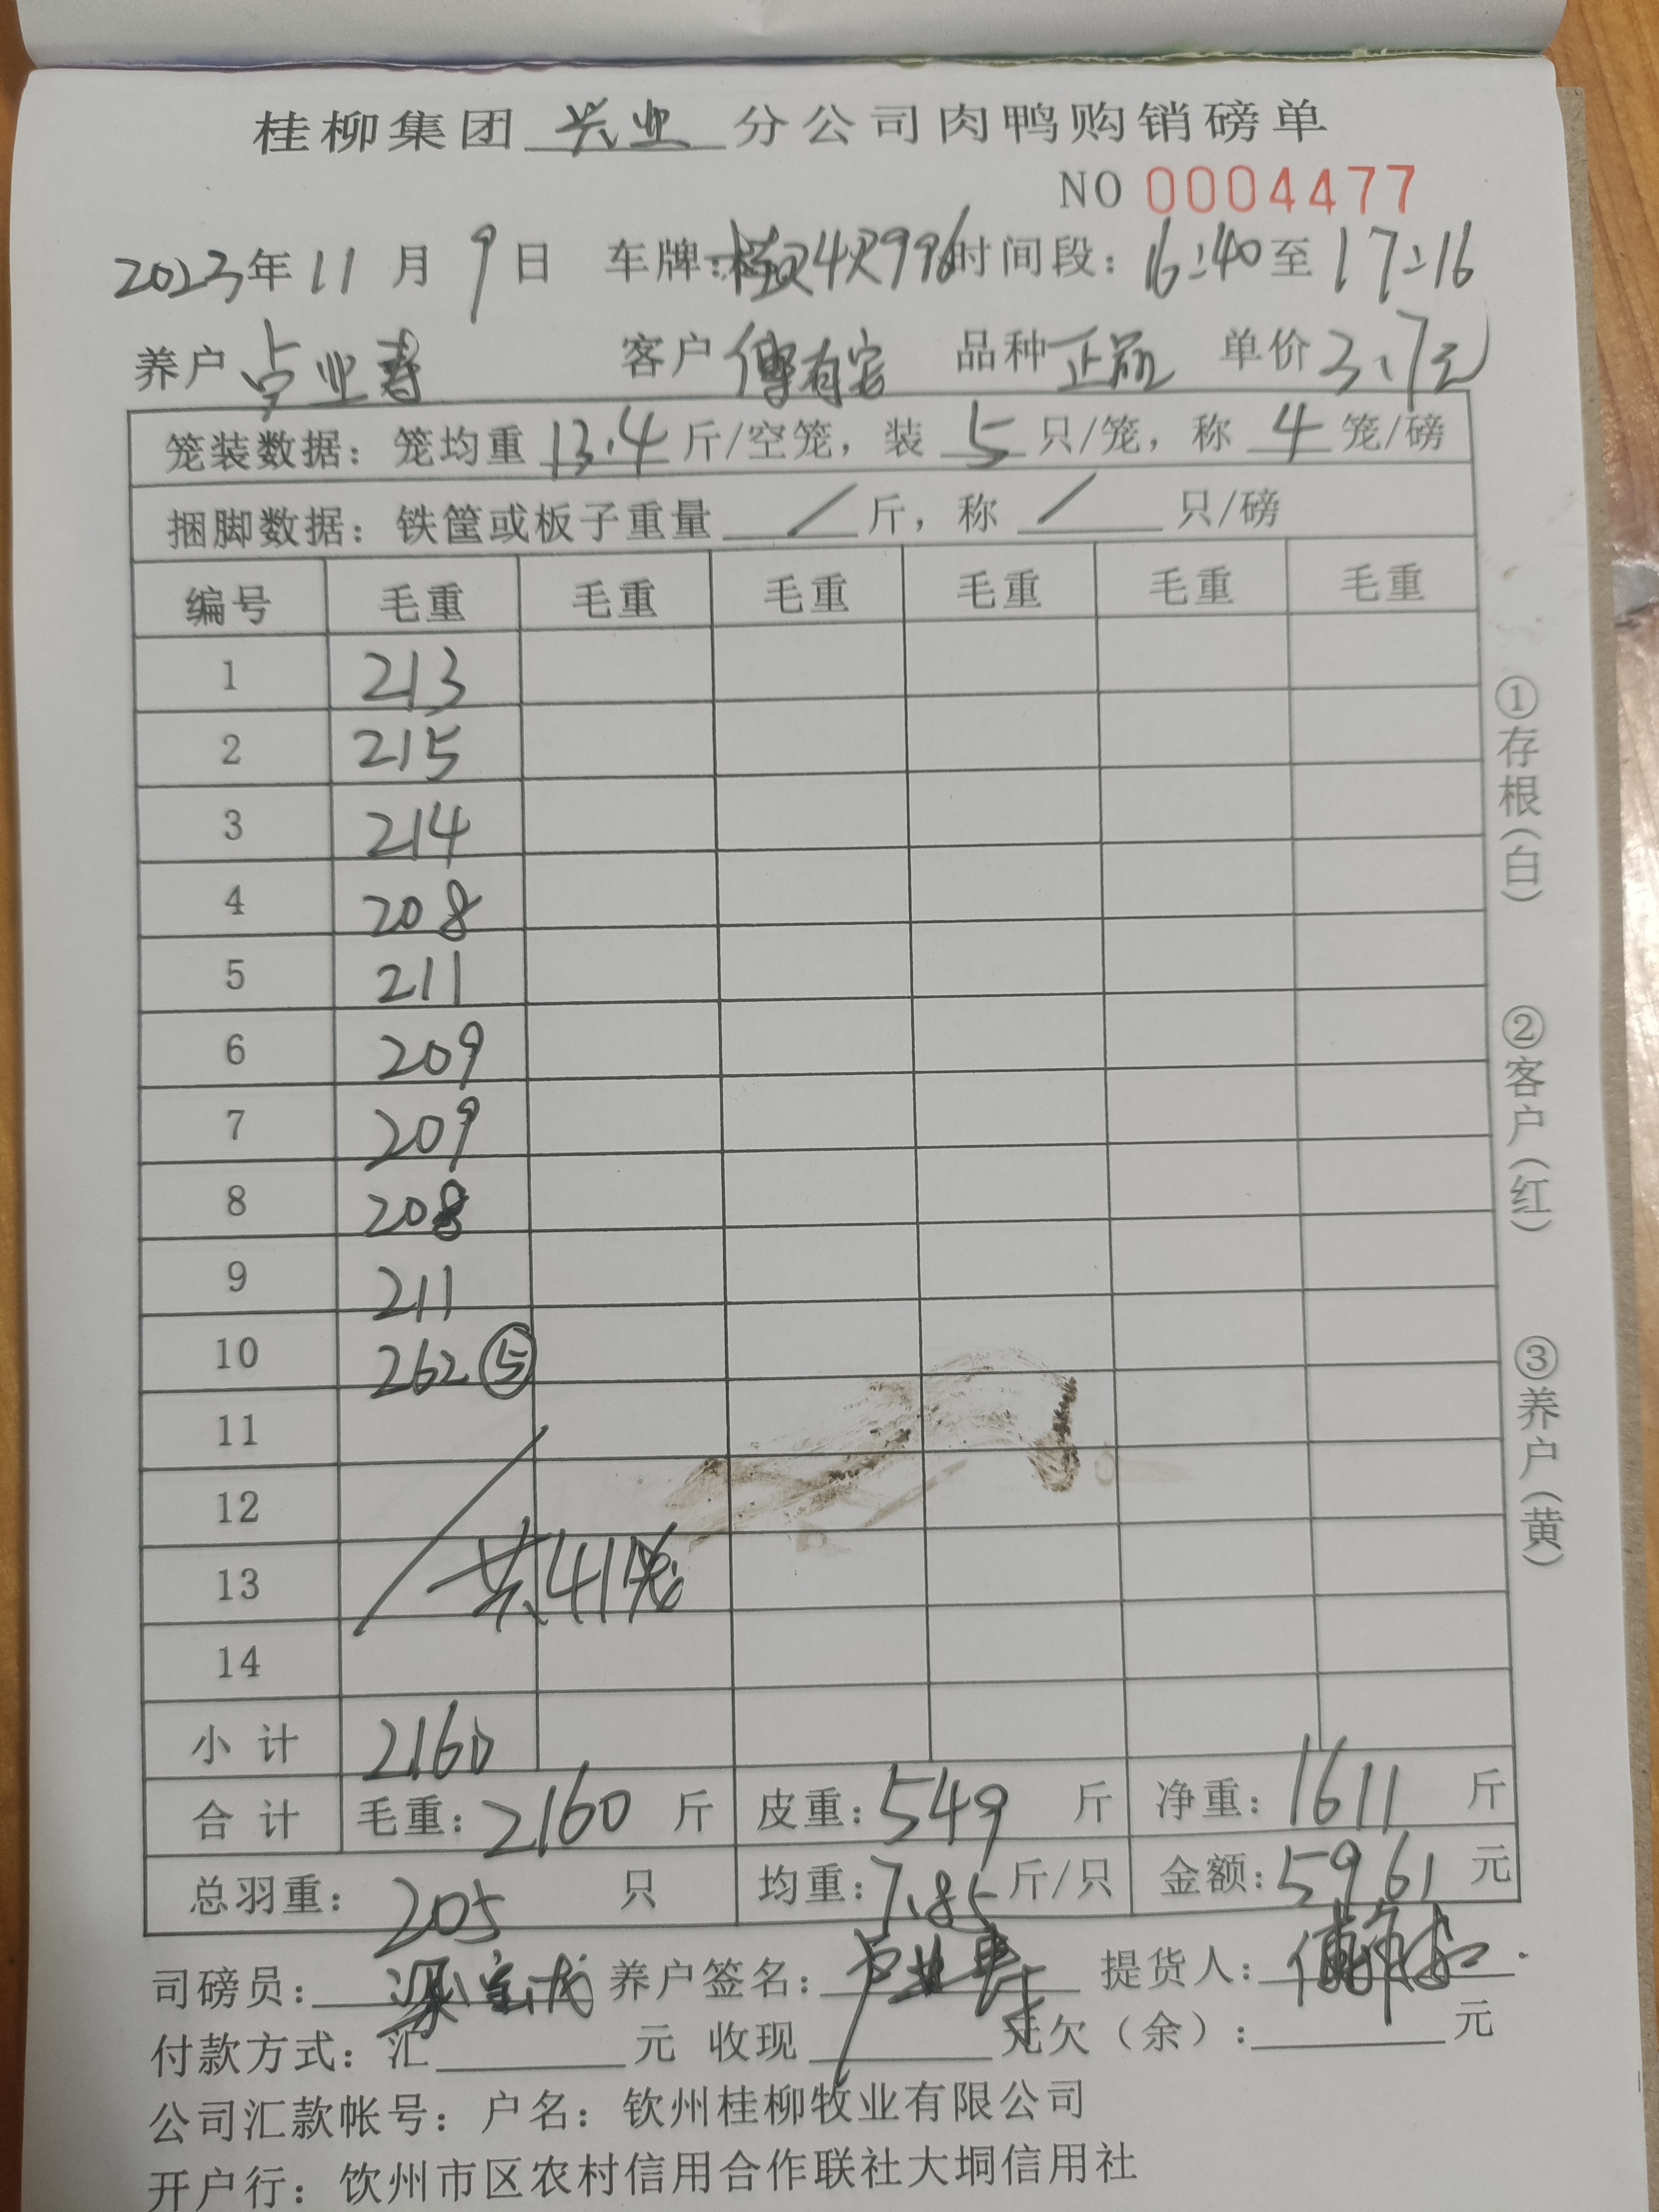 桂柳集团兴业分公司肉鸭购销磅单
NO 0004477
2023年11月9日 车牌: 时间段:16:40至17:16
养户 卢业寿 客户 傅有宏 品种 正品 单价 3.7元
笼装数据:笼均重 13.4 斤/空笼,装 5 只/笼,称 4 笼/磅
捆脚数据:铁筐或板子重量 / 斤,称 / 只/磅
编号 毛重 毛重 毛重 毛重 毛重 毛重
1 213
2 215
3 214
4 208
5 211
6 209
7 209
8 208
9 211
10 262 ⑤
11
12
13 共41笼
14
小计 2160
合计 毛重:2160 斤 皮重:549 斤 净重:1611 斤
总羽重:205 只 均重:7.85 斤/只 金额:5961 元
司磅员: 养户签名:卢业寿 提货人:
付款方式:汇 元 收现 元欠(余): 元
公司汇款帐号:户名:钦州桂柳牧业有限公司
开户行:饮州市区农村信用合作联社大垌信用社
①存根(白)
②客户(红)
③养户(黄)